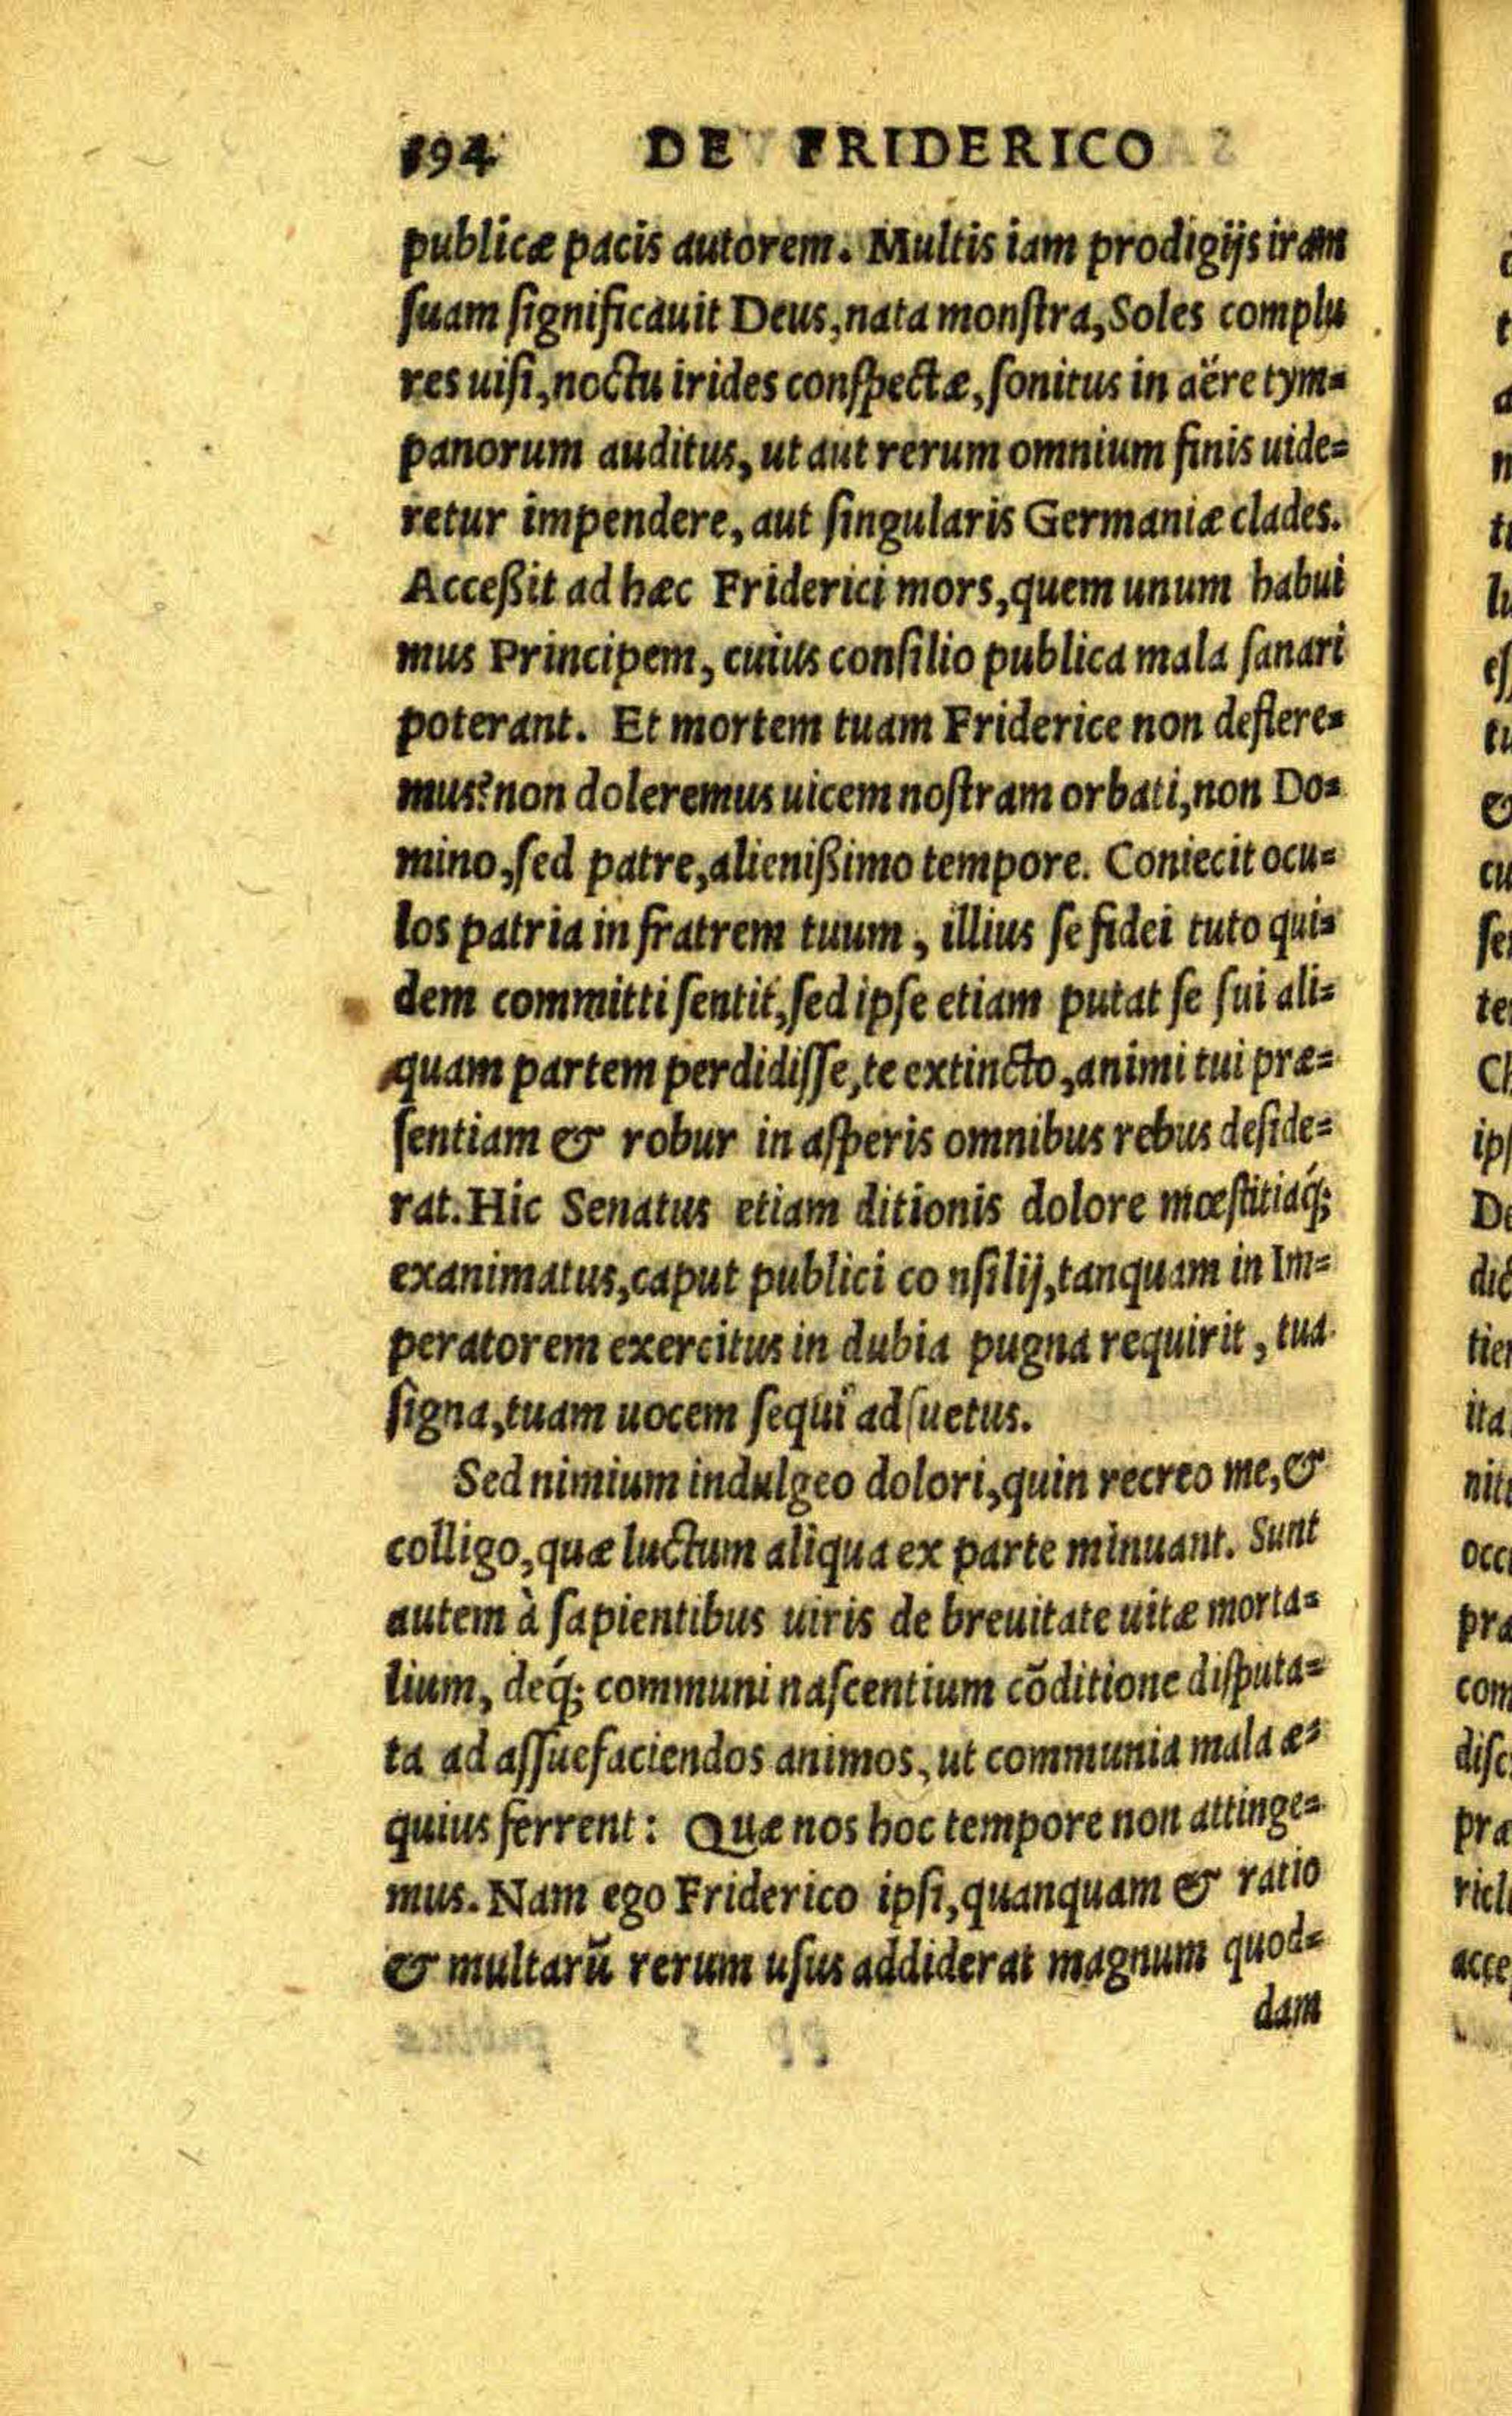 194 DE FRIDERICO
publicæ pacis autorem. Multis iam prodigijs iram
suam significauit Deus, nata monstra, Soles complu
res uisi, noctu irides conspectæ, sonitus in aëre tym-
panorum auditus, ut aut rerum omnium finis uide-
retur impendere, aut singularis Germaniæ clades.
Acceßit ad hæc Friderici mors, quem unum habui
mus Principem, cuius consilio publica mala sanari
poterant. Et mortem tuam Friderice non deflere-
mus? non doleremus uicem nostram orbati, non Do-
mino, sed patre, alienißimo tempore. Coniecit ocu-
los patria in fratrem tuum, illius se fidei tuto qui-
dem committi sentit, sed ipse etiam putat se sui ali-
quam partem perdidisse, te extincto, animi tui præ-
sentiam & robur in asperis omnibus rebus deside-
rat. Hic Senatus etiam ditionis dolore mœstitiaq́;
exanimatus, caput publici co nsilij, tanquam in Im-
peratorem exercitus in dubia pugna requirit, tua
signa, tuam uocem sequi adsuetus.
Sed nimium indulgeo dolori, quin recreo me, &
colligo, quæ luctum aliqua ex parte minuant. Sunt
autem à sapientibus uiris de breuitate uitæ morta-
lium, deq́; communi nascentium cõditione disputa-
ta ad assuefaciendos animos, ut communia mala æ-
quius ferrent: Quæ nos hoc tempore non attinge-
mus. Nam ego Friderico ipsi, quanquam & ratio
& multarũ rerum usus addiderat magnum quod-
dam